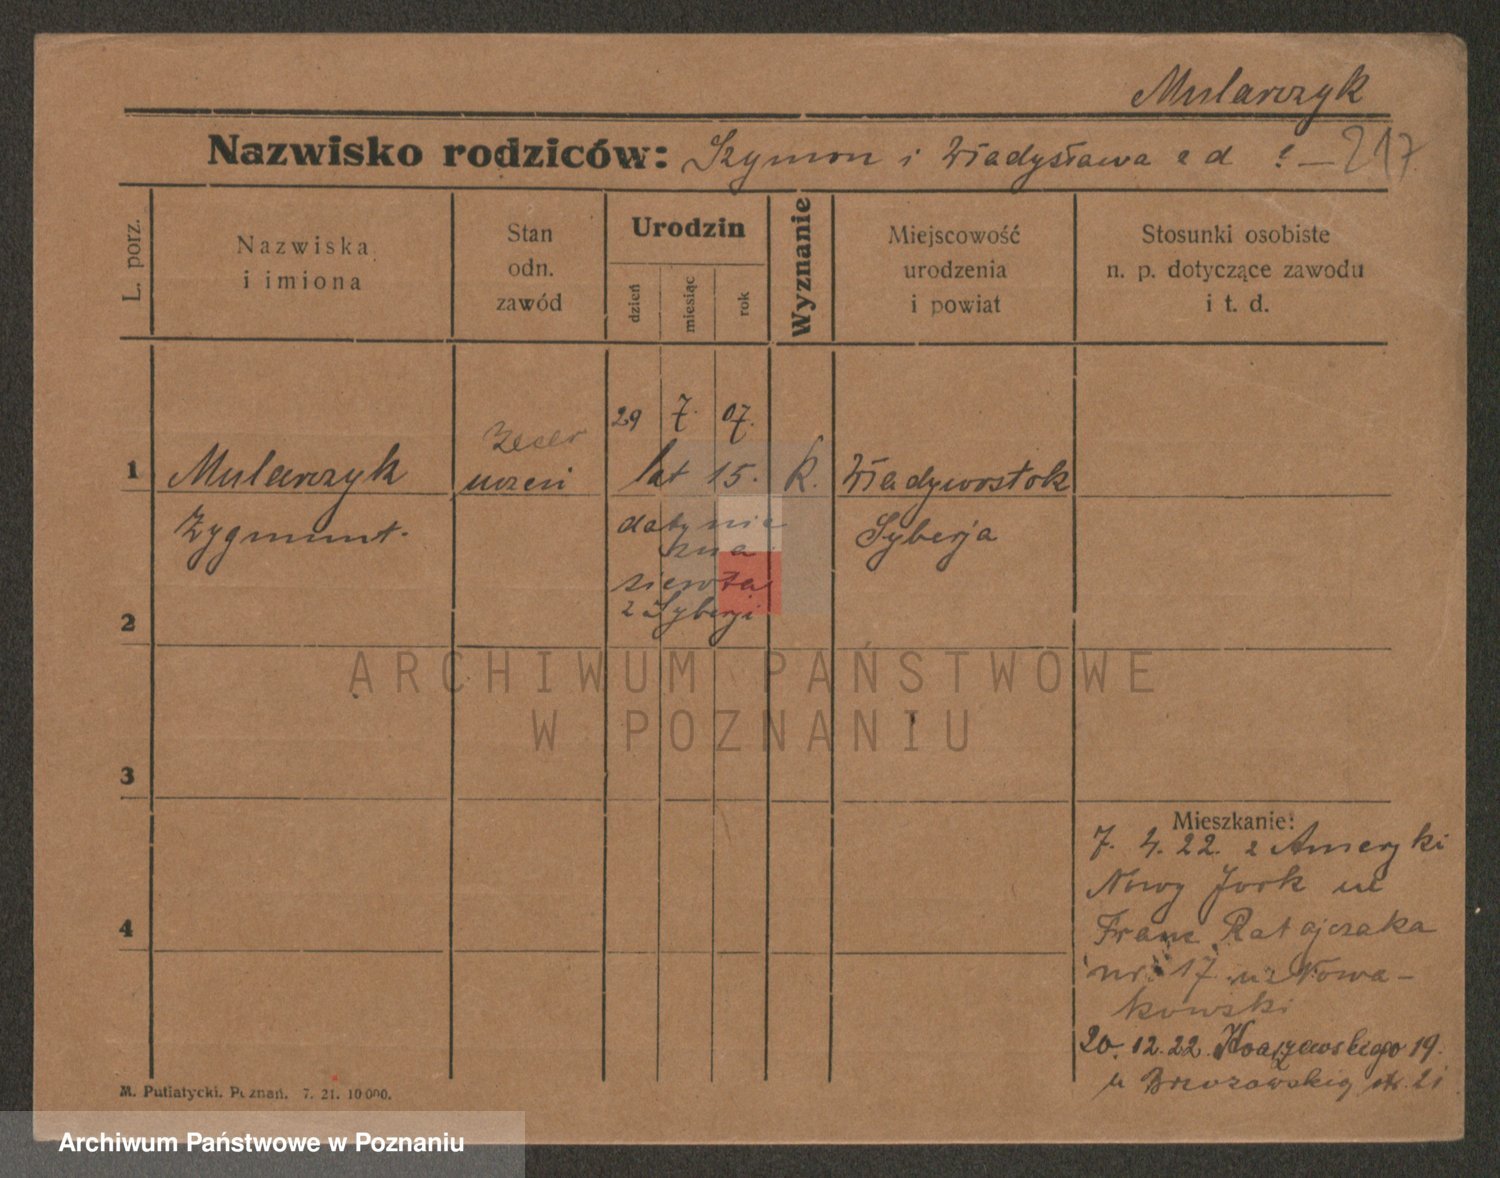 Mularczyk
Nazwisko rodziców: Szymon i Władysława e d ? — 217
L. porz.
Nazwiska
i imiona
Stan
odn.
zawód
Urodzin
dzień
miesiąc
rok
Wyznanie
Miejscowość
urodzenia
i powiat
Stosunki osobiste
n. p. dotyczące zawodu
i t. d.
29 7. 07.
zecer
1 Mularczyk uczeń lat 15. k. Władywostok
Zygmunt. daty nie Syberja
zna
sierota
2 z Syberji
ARCHIWUM PAŃSTWOWE
W POZNANIU
3
Mieszkanie:
7. 4. 22. z Ameryki
Nowy Jork ul
4 Franc Ratajczaka
nr. 17 u Nowa-
kowski
20. 12. 22. 19.
u Brzozowskiej
M. Putiatycki. Poznań. 7. 21. 10000.
Archiwum Państwowe w Poznaniu